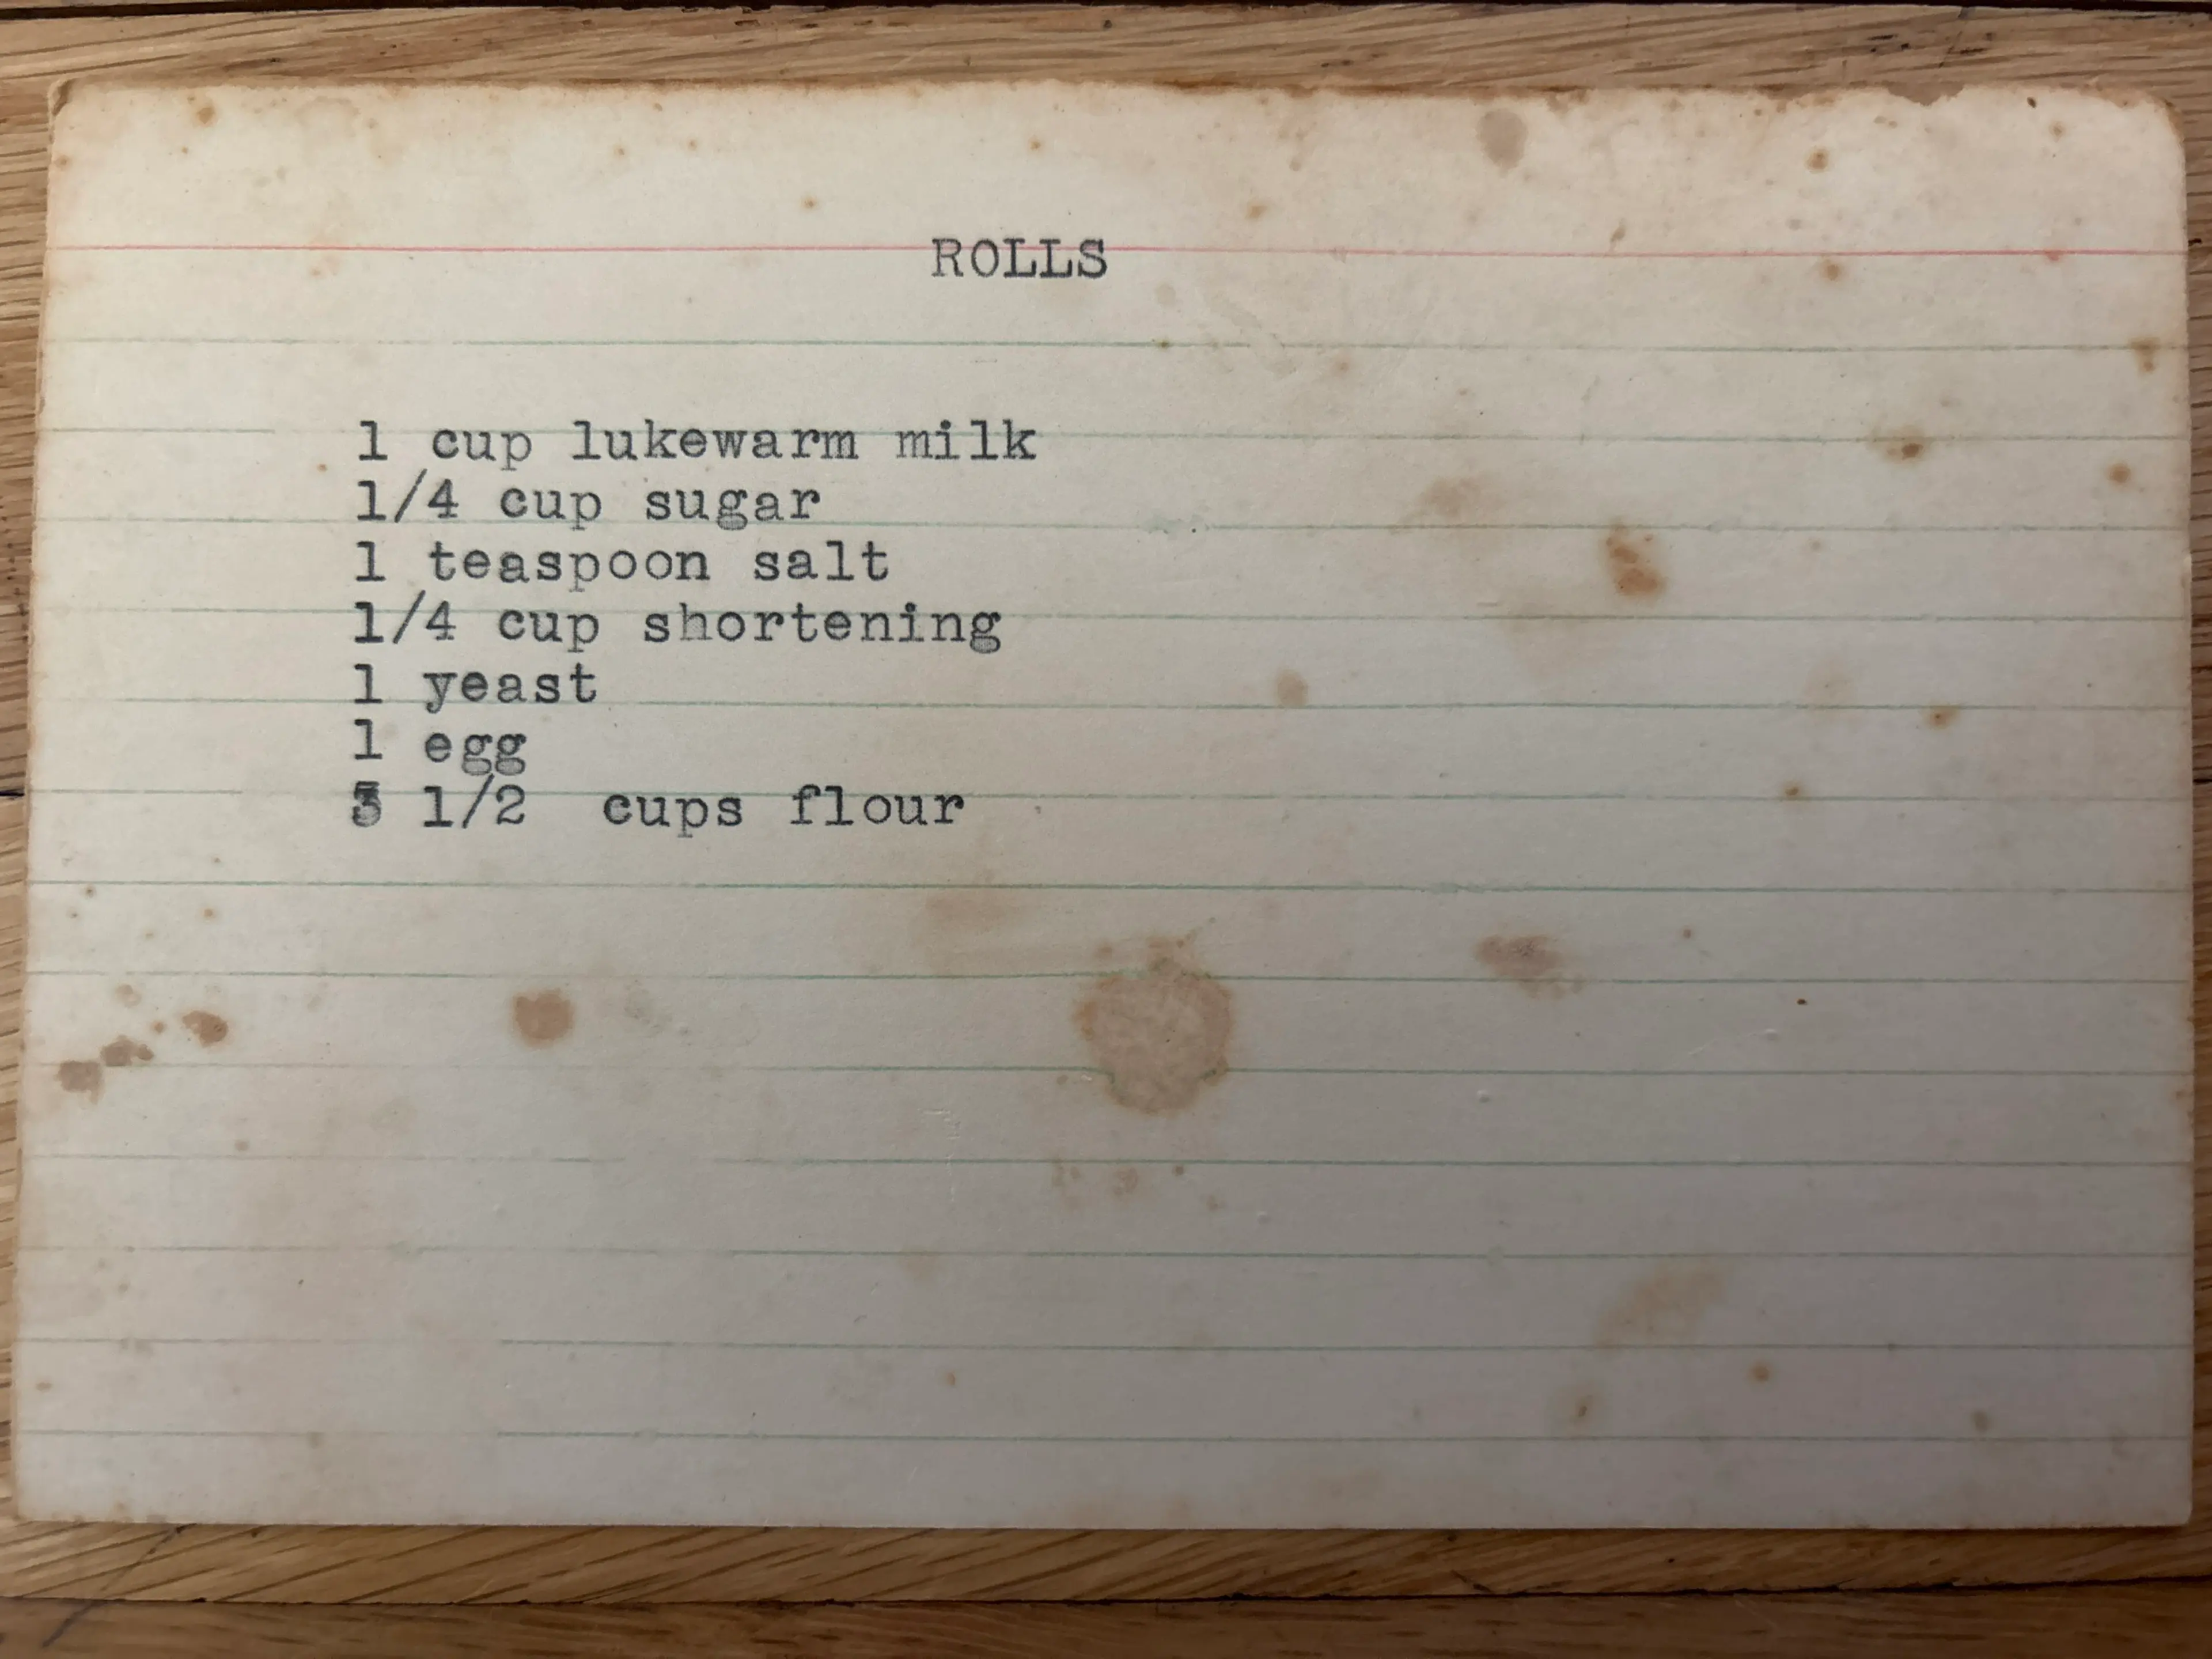 ROLLS
1 cup lukewarm milk
1/4 cup sugar
1 teaspoon salt
1/4 cup shortening
1 yeast
1 egg
3 1/2 cups flour